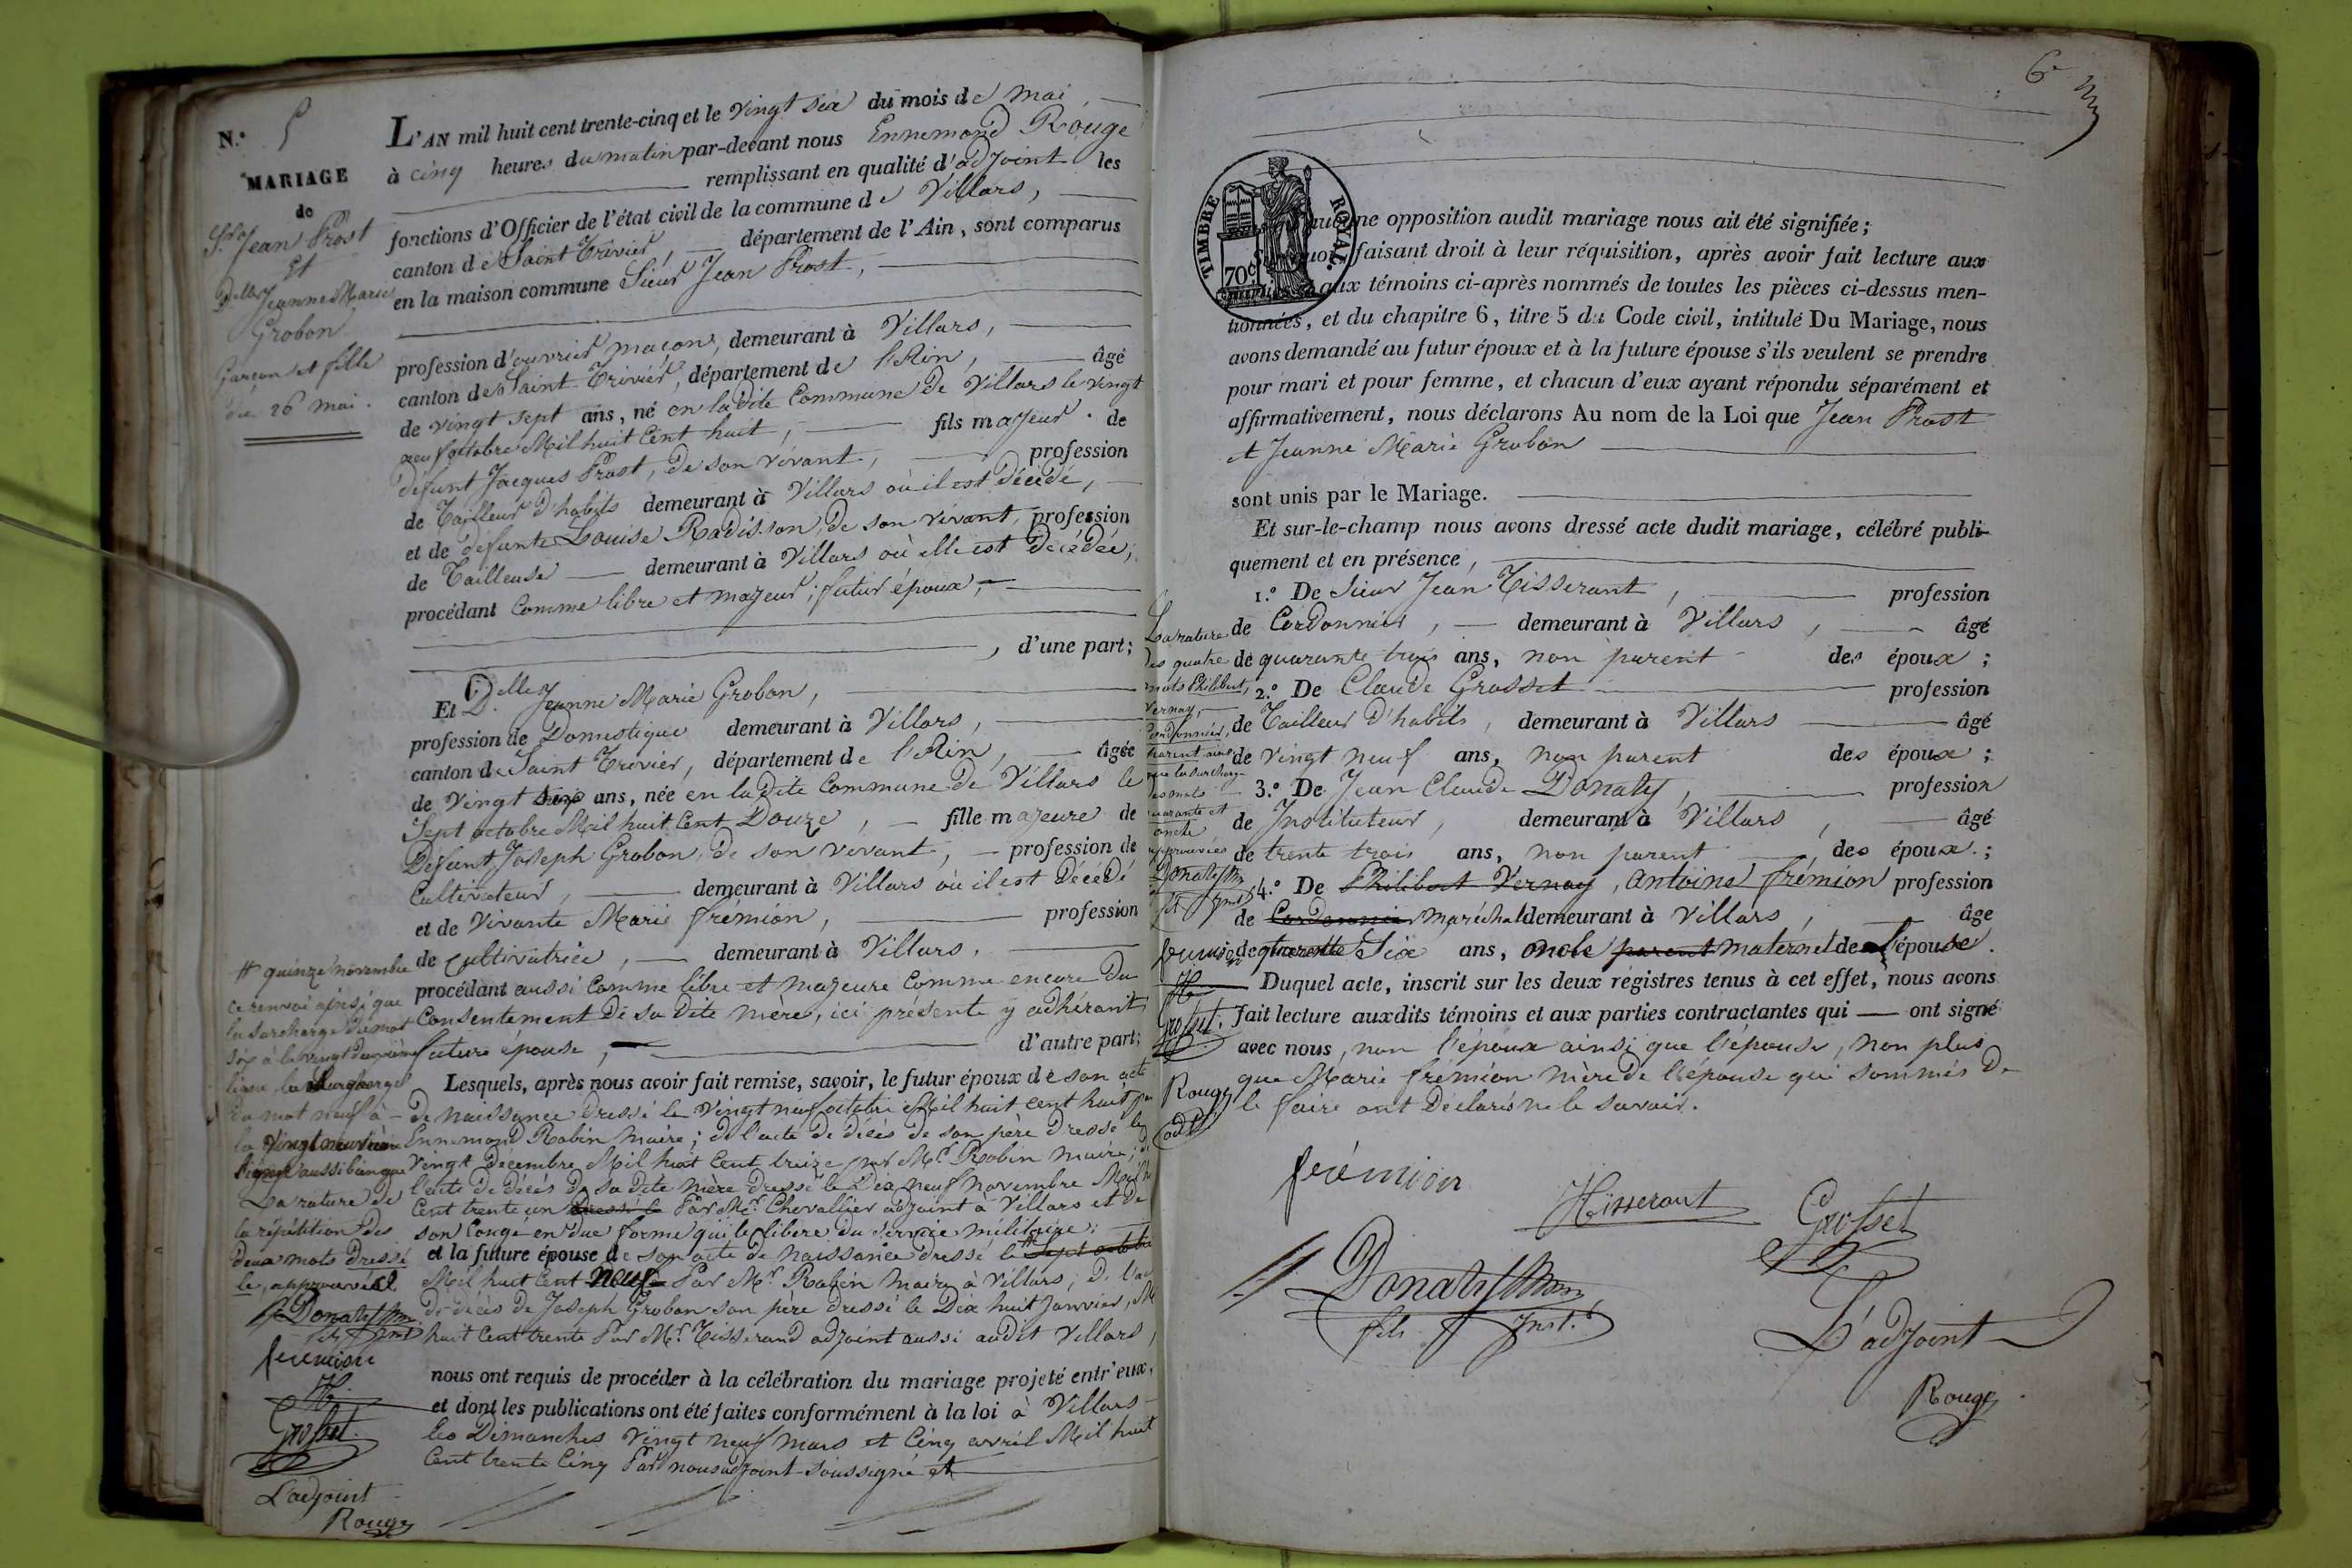 N.º 5
MARIAGE
de
Sr. Jean Prost
Et
Delle Jeanne Marie
Grobon
Garçon et fille
du 26 mai.
L'AN mil huit cent trente-cinq et le vingt six du mois de mai
à cinq heures du matin par-devant nous Ennemond Rouge
remplissant en qualité d'adjoint les
fonctions d'Officier de l'état civil de la commune de Villars,
canton de Saint Trivier, département de l'Ain, sont comparus
en la maison commune Sieur Jean Prost,
profession d'ouvrier maçon, demeurant à Villars,
canton de Saint Trivier, département de l'Ain, âgé
de vingt sept ans, né en la dite Commune de Villars le vingt
neuf octobre Mil huit Cent huit, fils majeur de
défunt Jacques Prost, de son vivant, profession
de Tailleur d'habits demeurant à Villars où il est Décédé,
et de défunte Louise Radisson de son vivant, profession
de Tailleuse demeurant à Villars où elle est Décédée,
procédant Comme libre et majeur, futur époux,
, d'une part;
Et Delle Jeanne Marie Grobon,
profession de Domestique demeurant à Villars,
canton de Saint Trivier, département de l'Ain, âgée
de vingt six ans, née en la dite Commune de Villars le
Sept octobre Mil huit Cent Douze, fille majeure de
Défunt Joseph Grobon, de son vivant, profession de
Cultivateur, demeurant à Villars où il est Décédé
et de Vivante Marie frémion, profession
de Cultivatrice, demeurant à Villars,
procédant aussi Comme libre et majeure Comme encore du
Consentement de sa dite mère, ici présente y adhérant
future epouse, d'autre part;
Lesquels, après nous avoir fait remise, savoir, le futur époux de son acte
de naissance dressé le vingt neuf octobre Mil huit cent huit par
Ennemond Robin maire; de l'acte de décès de son père dressé le
vingt Décembre Mil huit Cent treize par Mr Robin maire; de
l'acte de décès de sa dite mère dressé le Dix neuf novembre Mil huit
Cent trente un dressé le Par Mr. Chevallier adjoint à Villars et de
son Congé en due forme qui le libère du service militaire;
et la future épouse de son acte de naissance dressé le # Sept octobre
Mil huit Cent neuf Par Mr. Robin maire à Villars; De l'acte
de décès de Joseph Grobon son père dressé le Dix huit Janvier, Mil
huit Cent trente Par Mr. Tisserand adjoint aussi audit Villars,
nous ont requis de procéder à la célébration du mariage projeté entr'eux,
et dont les publications ont été faites conformément à la loi à Villars
les Dimanches vingt neuf mars et Cinq avril Mil huit
Cent trente Cinq Par nous adjoint soussigné et
# quinze novembre
ce renvoi ainsi que
la surcharge du mot
six à la vingt deuxième
ligne la surcharge
du mot neuf à
la vingt neuvième
ligne aussi bien que
La rature de
la répétition des
deux mots dressé
le, approuvés
Donaty
fils Inst
frémion
Ht
Grosset
L'adjoint
Rouge
6e
TIMBRE ROYAL.
70c
aucune opposition audit mariage nous ait été signifiée;
faisant droit à leur réquisition, après avoir fait lecture aux
aux témoins ci-après nommés de toutes les pièces ci-dessus men-
tionnées, et du chapitre 6, titre 5 du Code civil, intitulé Du Mariage, nous
avons demandé au futur époux et à la future épouse s'ils veulent se prendre
pour mari et pour femme, et chacun d'eux ayant répondu séparément et
affirmativement, nous déclarons Au nom de la Loi que Jean Prost
et Jeanne Marie Grobon
sont unis par le Mariage.
Et sur-le-champ nous avons dressé acte dudit mariage, célébré publi-
quement et en présence,
1.º De Sieur Jean Tisserant, profession
de Cordonnier, demeurant à Villars, âgé
de quarante trois ans, non parent des époux;
2.º De Claude Grosset profession
de Tailleur d'habits, demeurant à Villars âgé
de vingt neuf ans, non parent des époux;
3.º De Jean Claude Donaty, profession
de Instituteur, demeurant à Villars, âgé
de trente trois ans, non parent des époux;
4.º De Philibert Vernay, Antoine frémion profession
de Cordonnier maréchal demeurant à Villars, âgé
de quarante Six ans, oncle parent maternel de l'épouse.
Duquel acte, inscrit sur les deux régistres tenus à cet effet, nous avons
fait lecture auxdits témoins et aux parties contractantes qui ont signé
avec nous, non l'époux ainsi que l'épouse, non plus
que Marie frémion mère de l'épouse qui sommés de
le faire ont Déclarés ne le savoir.
La rature
des quatre
mots Philibert,
Vernay,
Cordonnier,
parent ainsi
que la surcharge
des mots
quarante et
oncle
approuvées
Donaty
fils Inst
frémion
Ht
Grosset.
Rouge
adjt
frémion
Htisserant
Grosset
Donaty
fils Inst.
L'adjoint
Rouge